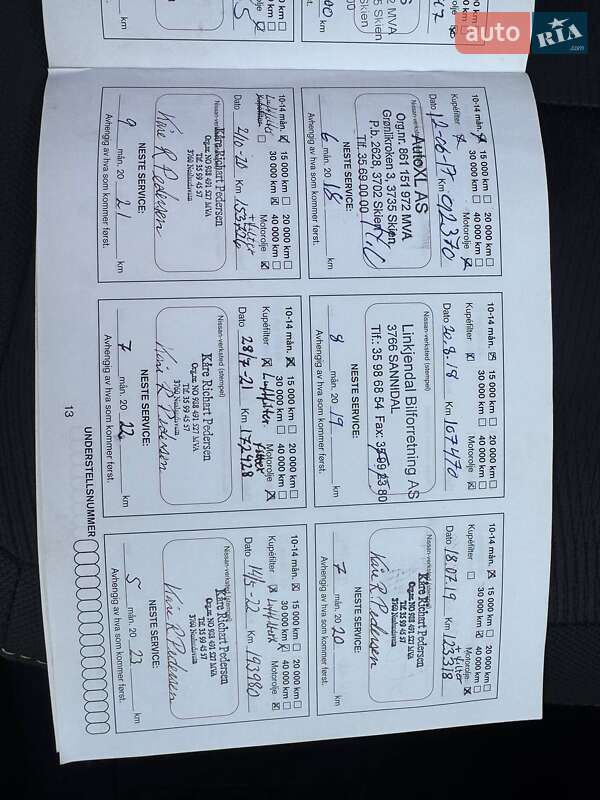 auto RIA.com
10-14 mån. 15 000 km 20 000 km
30 000 km 40 000 km
Kupéfilter Motorolje
Dato 12-06-17 Km 092370
Nissan-verksted (stempel)
AutoXL AS
Org.nr. 861 151 972 MVA
Grønlikroken 3, 3735 Skien
P.b. 2026, 3702 Skien
Tlf. 35 69 00 00
NESTE SERVICE:
6 mån. 20 18 km
Avhengig av hva som kommer først.
10-14 mån. 15 000 km 20 000 km
30 000 km 40 000 km
Kupéfilter Motorolje
Dato 20.8.18 Km 107470
Nissan-verksted (stempel)
Linkjendal Bilforretning AS
3766 SANNIDAL
Tlf.: 35 98 68 54 Fax: 35 99 23 80
NESTE SERVICE:
8 mån. 20 19 km
Avhengig av hva som kommer først.
10-14 mån. 15 000 km 20 000 km
30 000 km 40 000 km
Kupéfilter Motorolje + filter
Dato 18.07.19 Km 123318
Nissan-verksted (stempel)
Kåre Richart Pedersen
Org.nr. NO 928 491 527 MVA
Tlf. 35 99 45 57
Kåre R Pedersen
NESTE SERVICE:
7 mån. 20 20 km
Avhengig av hva som kommer først.
10-14 mån. 15 000 km 20 000 km
30 000 km 40 000 km
Luftfilter
Kupéfilter Motorolje + filter
Dato 21/10-20 Km 153706
Nissan-verksted (stempel)
Kåre Richart Pedersen
Org.nr. NO 928 491 527 MVA
Tlf. 35 99 45 57
Kåre R Pedersen
NESTE SERVICE:
9 mån. 20 21 km
Avhengig av hva som kommer først.
10-14 mån. 15 000 km 20 000 km
30 000 km 40 000 km
Kupéfilter Luftfilter Motorolje filter
Dato 28/7-21 Km 172928
Nissan-verksted (stempel)
Kåre Richart Pedersen
Org.nr. NO 928 491 527 MVA
Tlf. 35 99 45 57
Kåre R Pedersen
NESTE SERVICE:
7 mån. 20 22 km
Avhengig av hva som kommer først.
10-14 mån. 15 000 km 20 000 km
30 000 km 40 000 km
Kupéfilter Motorolje
Dato 14/5-22 Km 193980
Nissan-verksted (stempel)
Kåre Richart Pedersen
Org.nr. NO 928 491 527 MVA
Tlf. 35 99 45 57
Kåre R Pedersen
NESTE SERVICE:
5 mån. 20 23 km
Avhengig av hva som kommer først.
13
UNDERSTELLSNUMMER